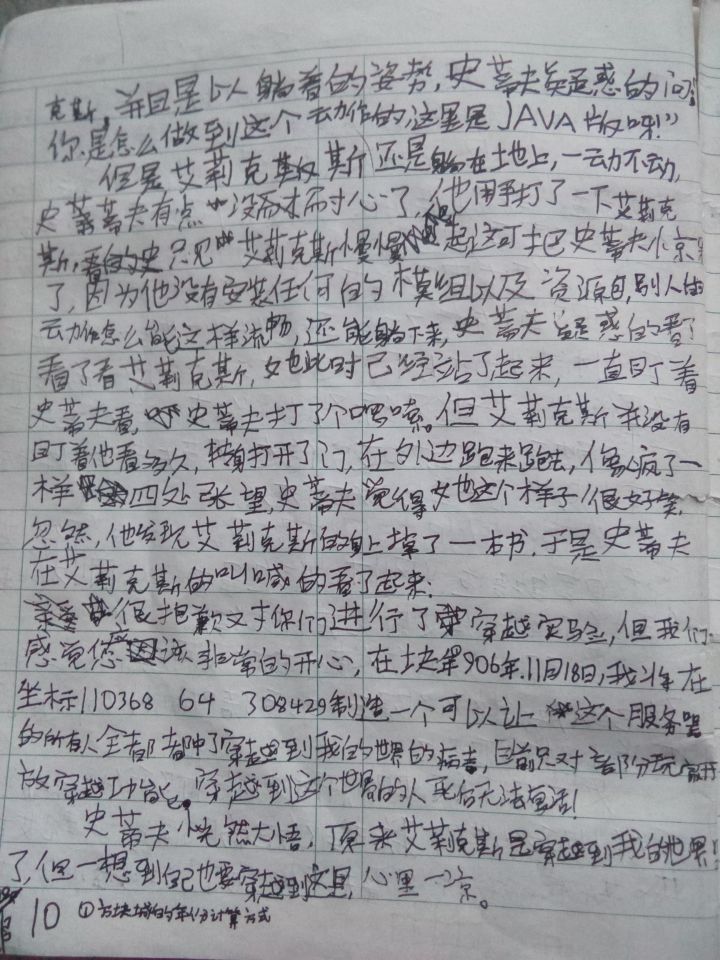 克斯,并且是以躺着的姿势,史蒂夫疑惑的问:
你是怎么做到这个动作的,这里是JAVA版呀!”
但是艾莉克斯还是躺在土地上,一动不动,
史蒂夫有点“没耐心了,他用手打了一下艾莉克
斯,只见艾莉克斯慢慢起这可把史蒂夫小京
了,因为他没有安装任何的模组以及资源包,别人的
动作怎么能这样流畅,还能躺下来,史蒂夫疑惑的看了
看了看艾莉克斯,她此时已经站了起来,一直盯着
史蒂夫看,史蒂夫打了个喷嚏。但艾莉克斯并没有
盯着他看多久,转身打开了门,在外边跑来跑去,像疯了一
样四处张望,史蒂夫觉得她这个样子很好笑,
忽然,他发现艾莉克斯的身上掉了一本书,于是史蒂夫
在艾莉克斯的叫喊的看了起来:
很抱歉对你们进行了穿越实验,但我们
感觉您应该非常的开心,在块年906年11日18日,我将在
坐标110368 64 308429制造一个可以让这个服务器
的所有人全都穿越到我的世界的病毒,目前只对部分玩家开
放穿越功能,穿越到这个世界的人死后无法复活!
史蒂夫恍然大悟,原来艾莉克斯是穿越到我的世界
了,但一想到自己也要穿越到这里,心里一京。
10 ①方块城的年份计算方式